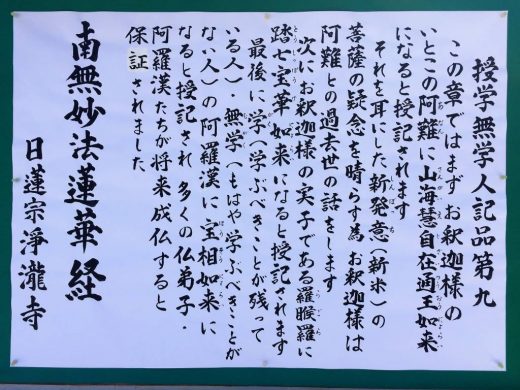 授学無学人記品第九
この章ではまずお釈迦様の
いとこの阿難に山海慧自在通王如来
になると授記されます
それを耳にした新発意（新米）の
菩薩の疑念を晴らす為お釈迦様は
阿難との過去世の話をします
次にお釈迦様の実子である羅睺羅に
踏七宝華如来になると授記されます
最後に学（学ぶべきことが残って
いる人）・無学（もはや学ぶべきことが
ない人）の阿羅漢に宝相如来に
なると授記され多くの仏弟子・
阿羅漢たちが将来成仏すると
保証されました
南無妙法蓮華経
日蓮宗淨瀧寺